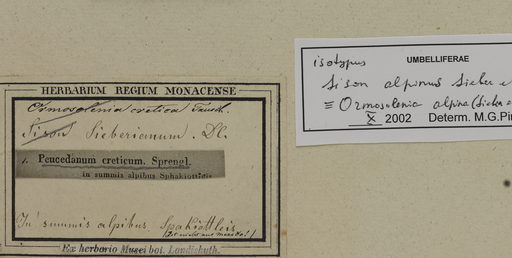 HERBARIUM REGIUM MONACENSE
Ormosolenia cretica Tausch.
Sison Sieberianum. DC.
1. Peucedanum creticum. Sprengl.
in summis alpibus Sphakioticis
In summis alpibus Spakiotteis
Ex herbario Musei bot. Landishuth.
isotypus
UMBELLIFERAE
Sison alpinus Sieber e
≡ Ormosolenia alpina (Sieber e
X 2002 Determ. M.G.Pi